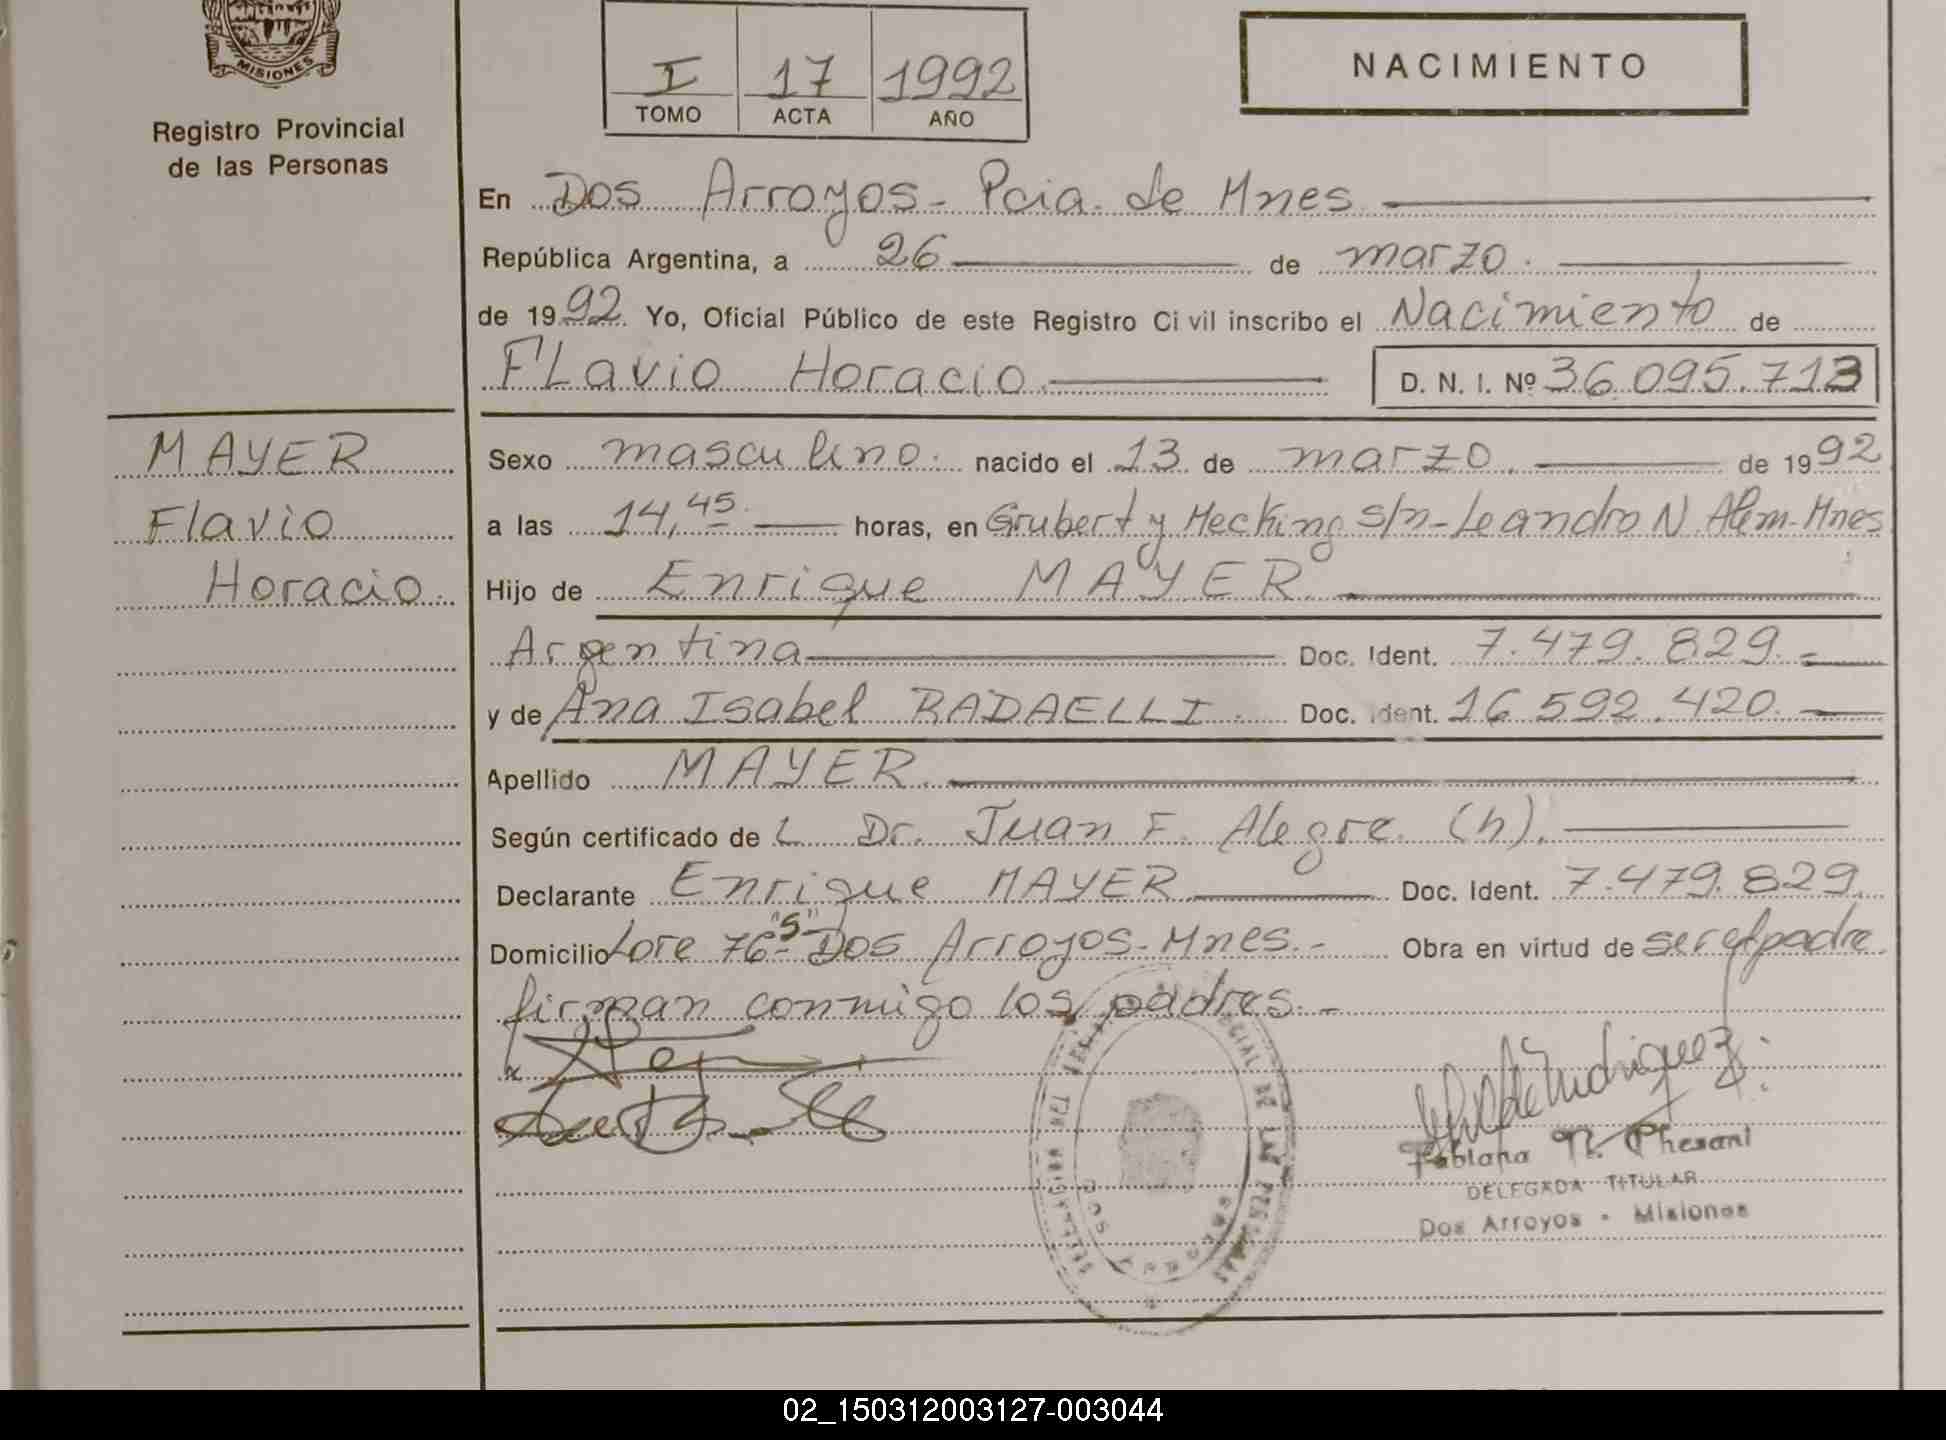 MISIONES
Registro Provincial
de las Personas
I 17 1992
TOMO ACTA AÑO
NACIMIENTO
En Dos Arroyos - Pcia. de Mnes
República Argentina, a 26 de marzo.
de 1992. Yo, Oficial Público de este Registro Civil inscribo el Nacimiento de
FLavio Horacio.
D. N. I. Nº 36.095.713
MAYER
Flavio
Horacio.
Sexo masculino. nacido el 13 de marzo. de 1992
a las 14,45 horas, en Grubert y Hecking s/n - Leandro N. Alem - Mnes
Hijo de Enrique MAYER.
Argentina Doc. Ident. 7.479.829.-
y de Ana Isabel RADAELLI. Doc. Ident. 16 592.420.
Apellido MAYER.
Según certificado de L Dr. Juan F. Alegre (h).
Declarante Enrique MAYER Doc. Ident. 7.479.829.
Domicilio Lote 76 "S" - Dos Arroyos - Mnes. - Obra en virtud de ser el padre
firman conmigo los padres. -
DE LAS PERSONAS
DOS ARROYOS
Fabiana N.
DELEGADA TITULAR
Dos Arroyos - Misiones
02_150312003127-003044